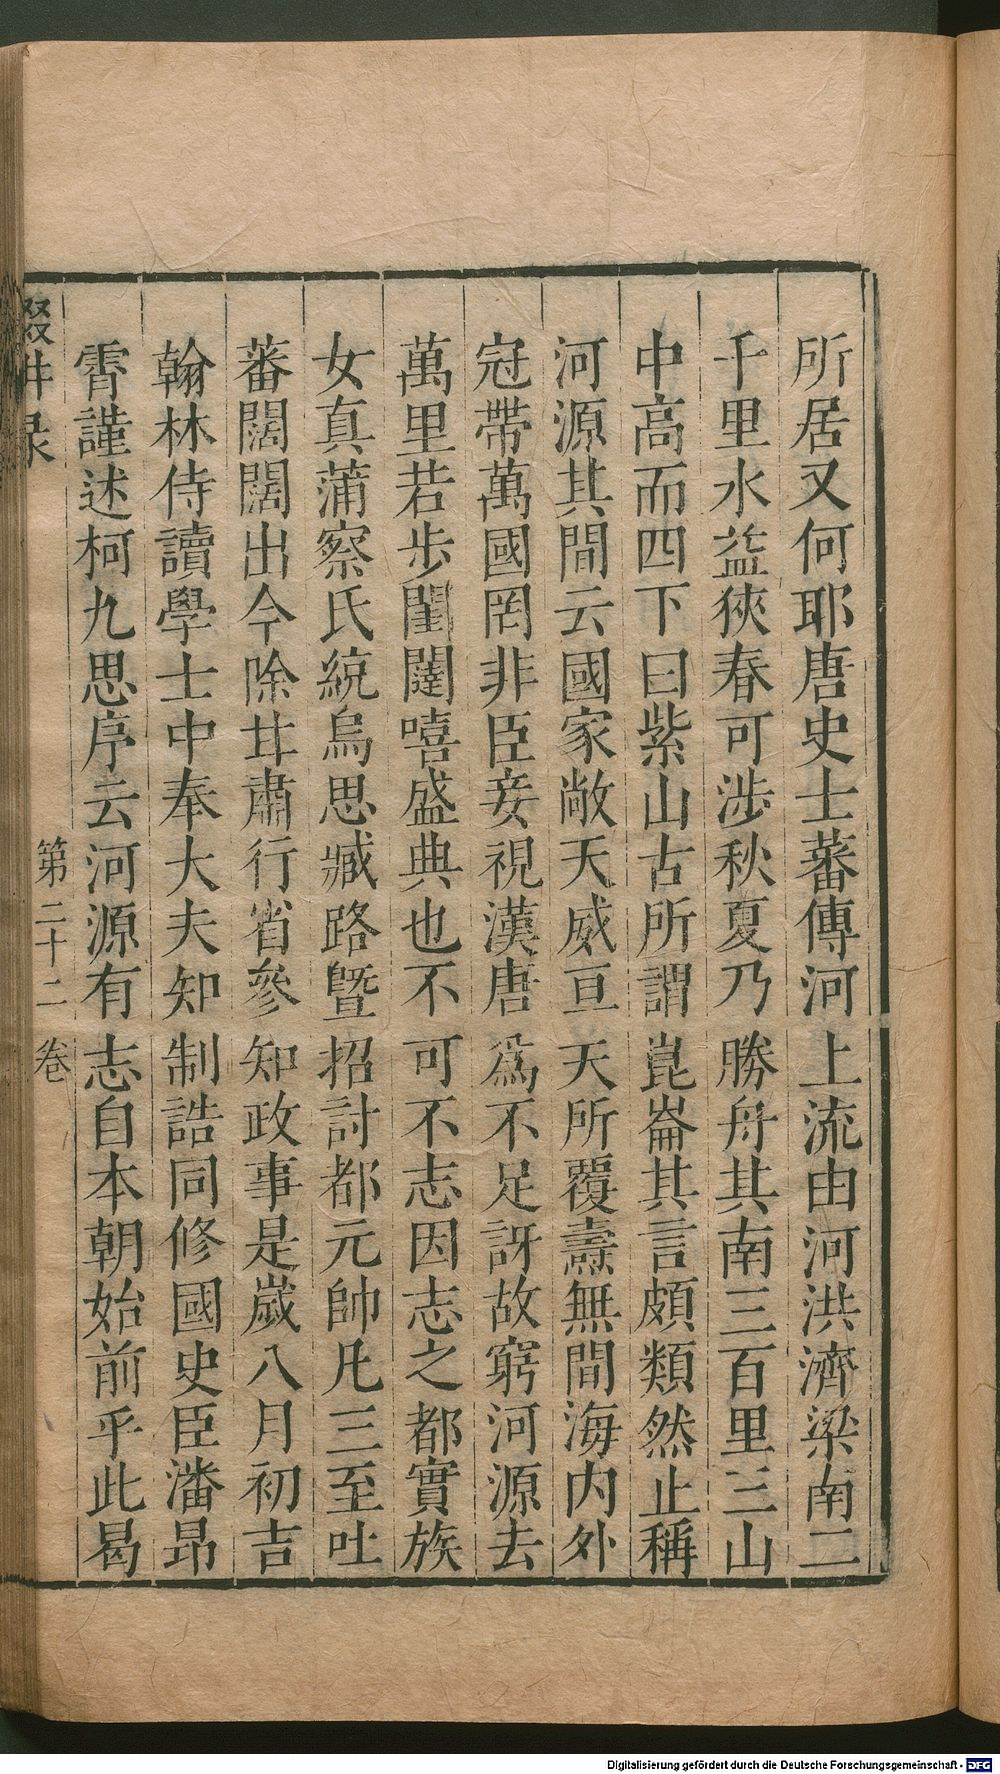 所居又何耶唐史士蕃傳河上流由河洪濟梁南二
千里水益狹春可涉秋夏乃勝舟其南三百里三山
中高而四下曰紫山古所謂崑崙其言頗類然止稱
河源其間云國家敞天威亘天所覆燾無間海内外
冠帶萬國罔非臣妾視漢唐爲不足訝故窮河源去
萬里若步閨闥嘻盛典也不可不志因志之都實族
女真蒲察氏統烏思臧路曁招討都元帥凡三至吐
蕃闊闊出今除甘肅行省參知政事是歲八月初吉
翰林侍讀學士中奉大夫知制誥同修國史臣潘昂
霄謹述柯九思序云河源有志自本朝始前乎此曷
輟耕录 第二十二卷
Digitalisierung gefördert durch die Deutsche Forschungsgemeinschaft - DFG